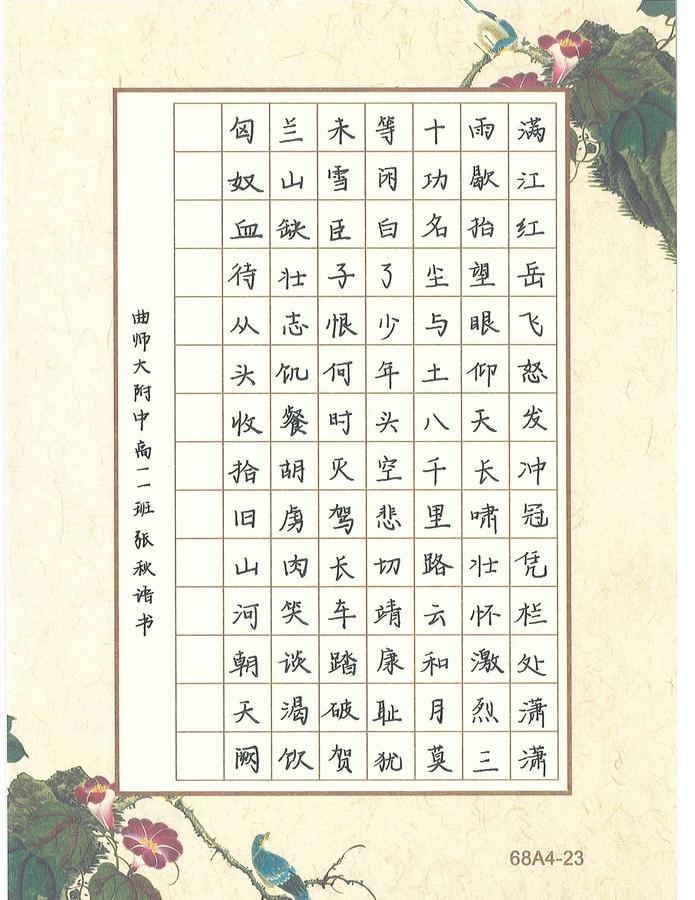 满江红岳飞怒发冲冠凭栏处潇潇
雨歇抬望眼仰天长啸壮怀激烈三
十功名尘与土八千里路云和月莫
等闲白了少年头空悲切靖康耻犹
未雪臣子恨何时灭驾长车踏破贺
兰山缺壮志饥餐胡虏肉笑谈渴饮
匈奴血待从头收拾旧山河朝天阙
曲师大附中高一一班张秋诺书
68A4-23